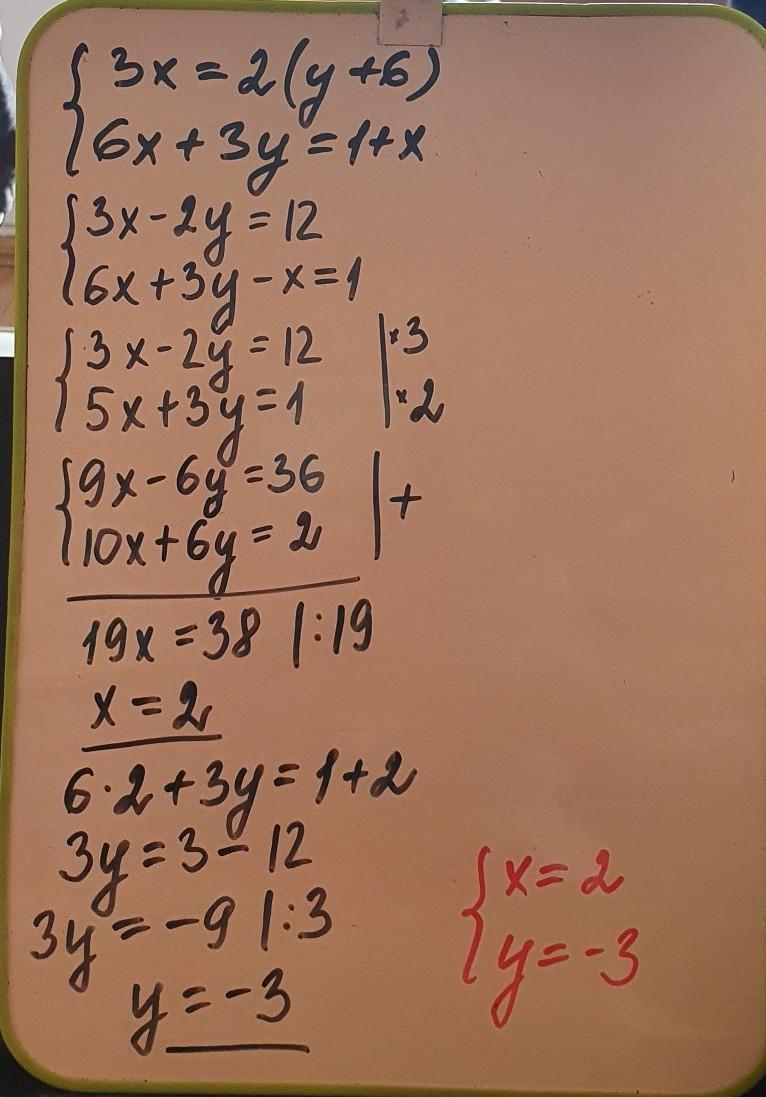 { 3x = 2(y+6)
6x + 3y = 1+x
{ 3x - 2y = 12
6x + 3y - x = 1
{ 3x - 2y = 12 | ×3
5x + 3y = 1 | ×2
{ 9x - 6y = 36 | +
10x + 6y = 2
19x = 38 |:19
x = 2
6·2 + 3y = 1+2
3y = 3 - 12
3y = -9 |:3
y = -3
{ x = 2
y = -3